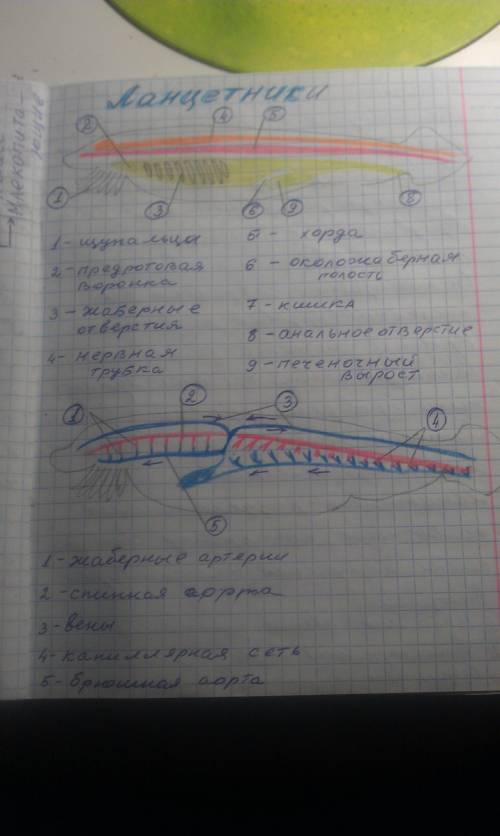 Млекопита-
ющие
Ланцетники
2
4
5
1
3
6
9
8
1 - щупальцы
2 - предротовая
воронка
3 - жаберные
отверстия
4 - нервная
трубка
5 - хорда
6 - околожаберная
полость
7 - кишка
8 - анальное отверстие
9 - печеночный
вырост
1
2
3
4
5
1 - жаберные артерии
2 - спинная аорта
3 - вены
4 - капиллярная сеть
5 - брюшная аорта